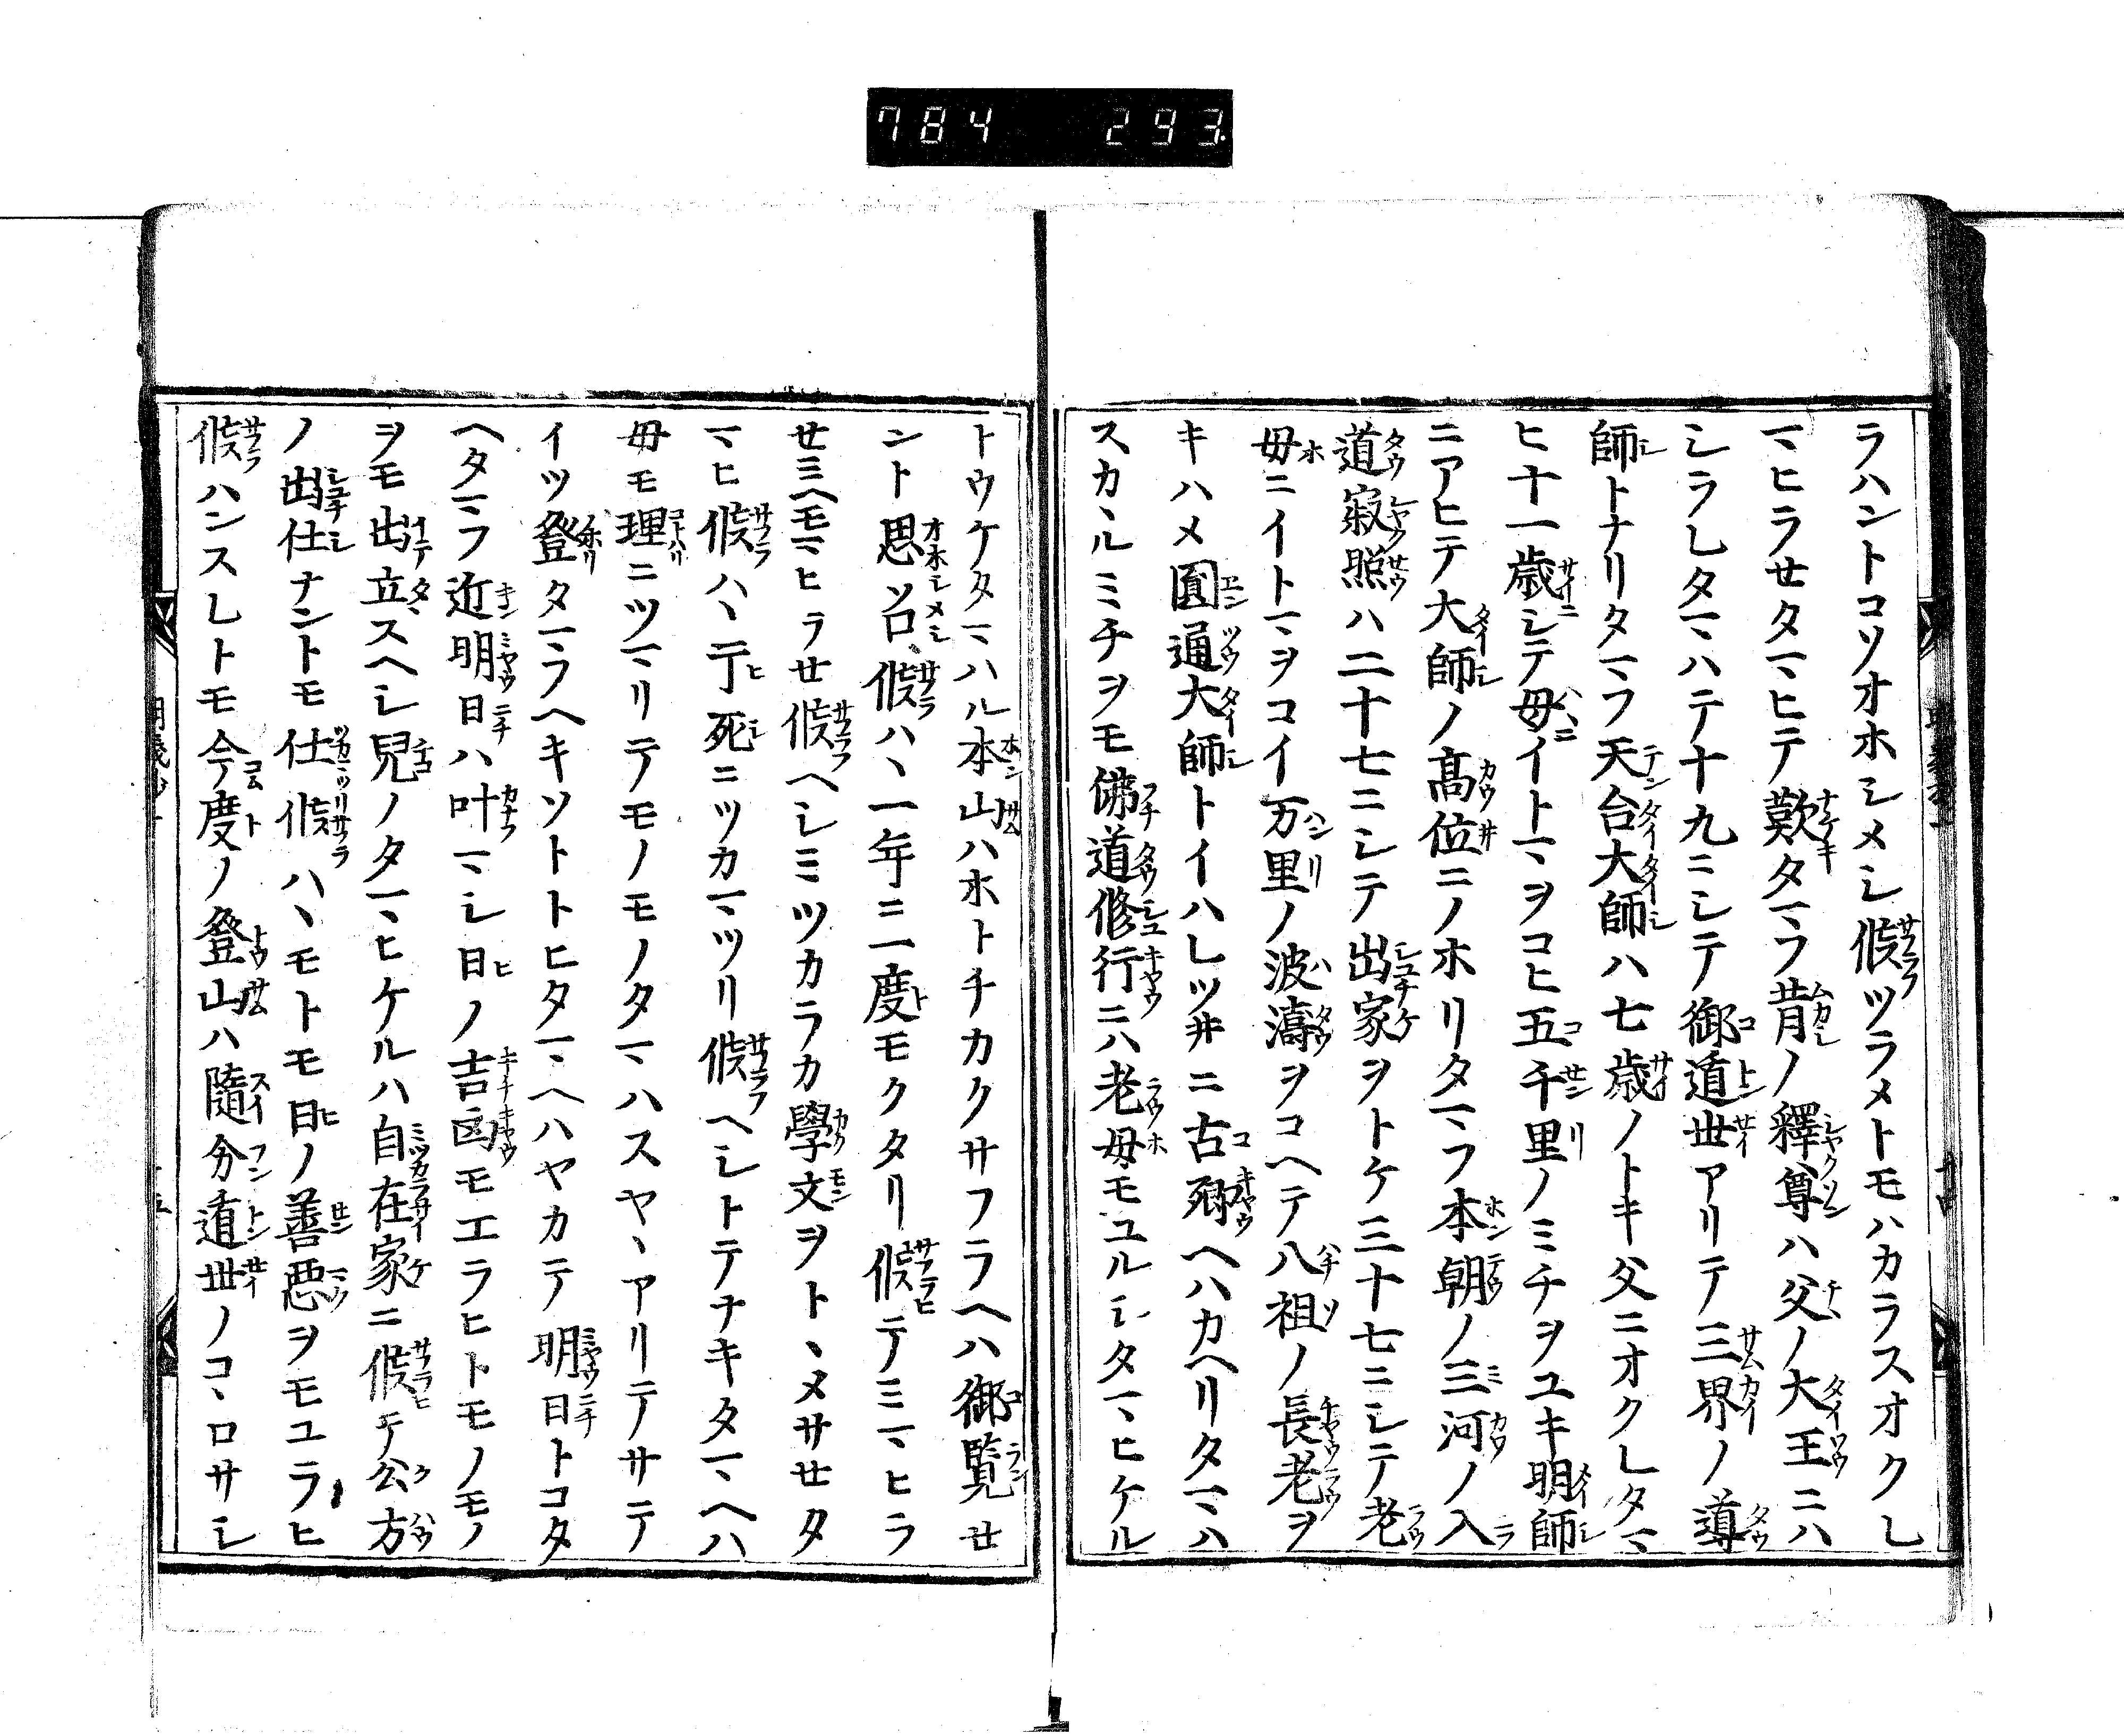 784 293
ラハントコソオホシメシ候ツラメトモハカラスオクレ
マヽヒラセタマヒテ歎タマフ昔ノ釋尊ハ父ノ大王ニハ
シラレタマハテ十九ニシテ御遁世アリテ三界ノ導
師トナリタマフ天台大師ハ七歳ノトキ父ニオクレタマ
ヒ十一歳ニシテ母ニイトマヲコヒ五千里ノミチヲユキ明師
ニアヒテ大師ノ高位ニノホリタマフ本朝ノ三河ノ入
道寂照ハ二十七ニシテ出家ヲトケ三十七ニシテ老
母ニイトマヲコイ万里ノ波濤ヲコヘテ八祖ノ長老ヲ
キハメ圓通大師トイハレツ井ニ古郷ヘハカヘリタマハ
スカヽルミチヲモ佛道修行ニハ老母モユルシタマヒケル
トウケタマハル本山ハホトチカクサフラヘハ御覧セ
ント思召候ハヽ一年ニ一度モクタリ候テミマヒラ
セミヘモマヒラセ候ヘシミツカラカ學文ヲトヽメサセタ
マヒ候ハヽ一丁死ニツカマツリ候ヘシトテナキタマヘハ
母モ理ニツマリテモノモノタマハスヤヽアリテサテ
イツ登タマフヘキソトトヒタマヘハヤカテ明日トコタ
ヘタマフ近明日ハ叶マシ日ノ吉凶モエラヒトモノモノ
ヲモ出立スヘシ兒ノタマヒケルハ自在家ニ候テ公方
ノ出仕ナントモ仕候ハヽモトモ日ノ善悪ヲモユラヒ
候ハンスレトモ今度ノ登山ハ隨分遁世ノコヽロサシ